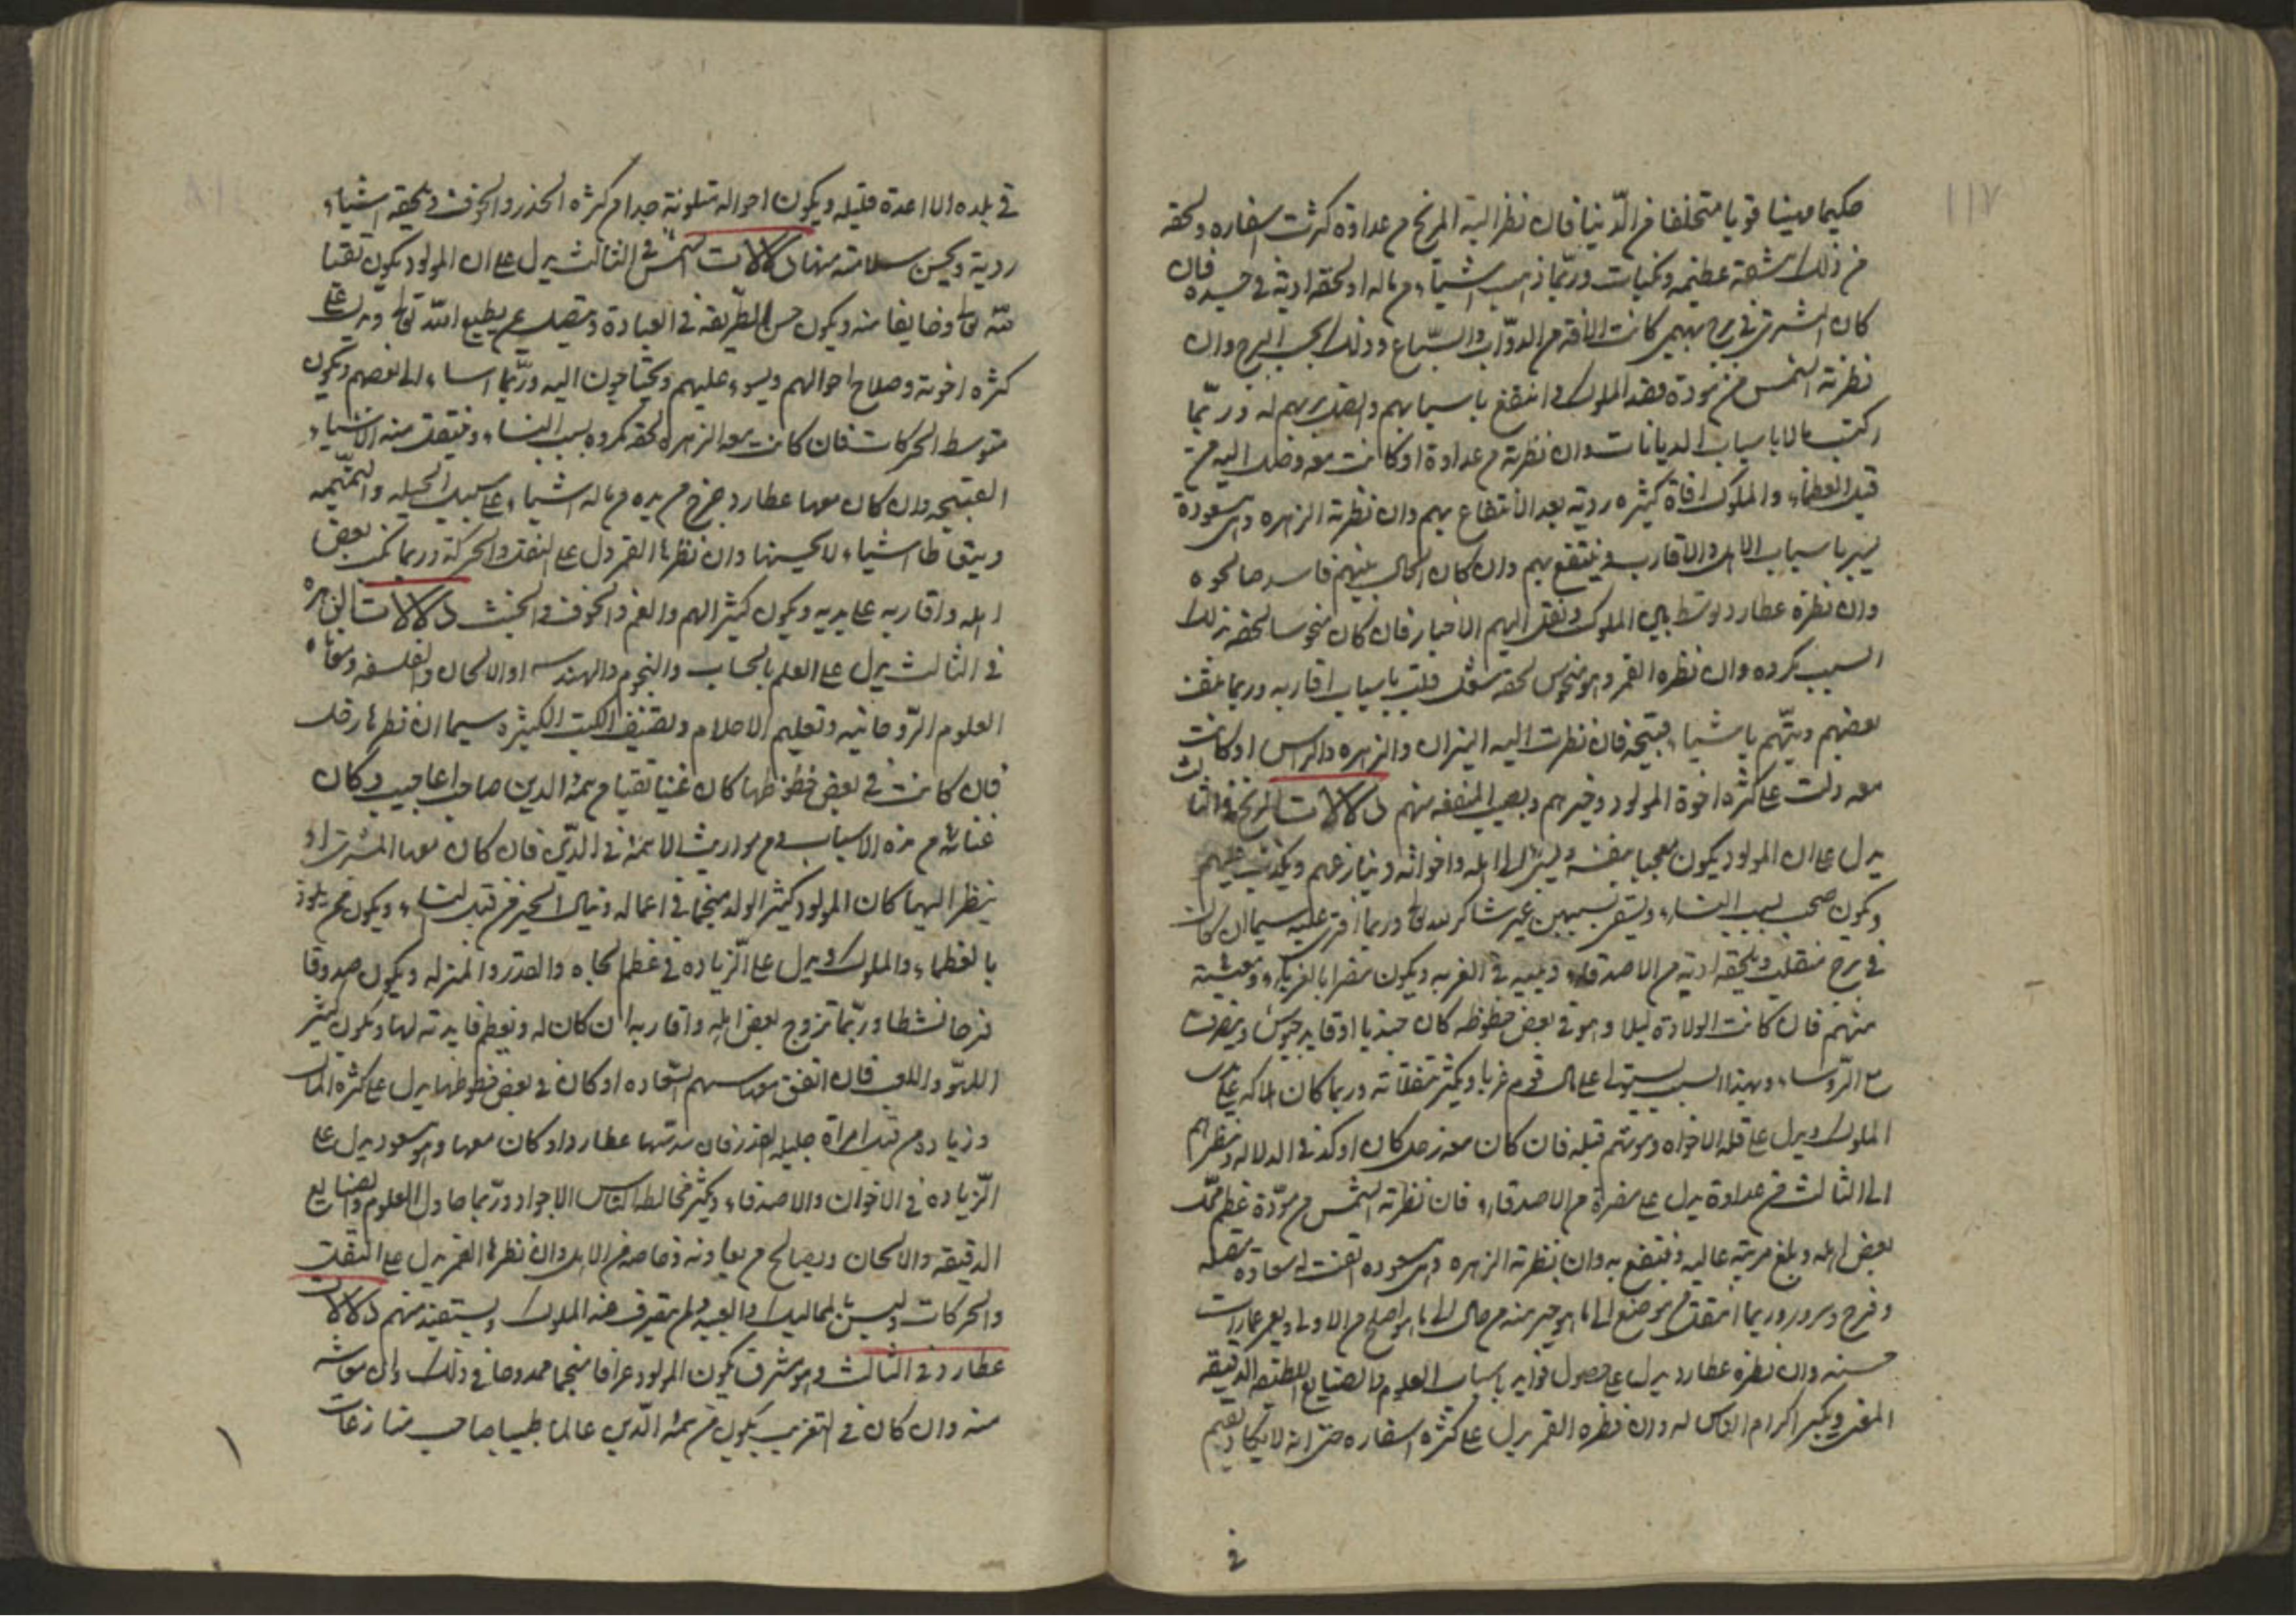 ١١٧
حكيما مهينا قويا متخلفا في الدنيا فان نظر اليه المريخ من عداوة كثرت اسفاره ولحقه
من ذلك مشقة عظيمه ونكبات وربما ذهب اشياء من ماله او لحقه اذية في جسده فان
كان المشترى في برج بهيمي كانت الافة من الدواب والسباع وذلك بحسب البرج وان
نظرته الشمس من مودة فقد الملوك وانتفع باسبابهم وله وربما
ركب بالاباسباب الديانات وان نظرته من عداوة او كانت معه وصل اليه من
قبل العظماء والملوك افاة كثيره ردية بعد الانتفاع بهم وان نظرته الزهره وهى مسعودة
يسر باسباب الاهل والاقارب وينتفع بهم وان كان الحال بينهم فاسد صالحوه
وان نظره عطارد توسط بين الملوك ونقل اليهم الاخبار فان كان منحوسا لحقه بذلك
السبب مكروه وان نظره القمر وهو منحوس لحقه شغل قلب باسباب اقاربه وربما
بعضهم ويتهم باشياء قبيحه فان نظرت اليه النيران والزهره والراس او كانت
معه دلت على كثرة اخوة المولود وخيرهم ويصيب المنفعه منهم دلالات المريخ في الثالث
يدل على ان المولود يكون معجبا بنفسه الى اهله واخوانه وينازعهم ويكذب عليهم
ويكون صحب بسبب النساء ويشقى بسببهن غير شاكر لله تعالى وربما افترى عليه سيما ان كان
في برج منقلب ويلحقه اذية من الاصدقاء في الغربه ويكون مضرا بالغرباء ومعيشته
منهم فان كانت الولادة ليلا وهو في بعض حظوظه كان جنديا او قايد جيوش ويتصرف
مع الروساء وبهذا السبب يستولى على مال قوم غربا ويكثر تنقلاته وربما كان هلاكه على
الملوك ويدل على قلة الاخوة وموتهم قبله فان كان معه زحل كان اوكد في الدلاله ونظرهم
الى الثالث من عداوة يدل على مضرة من الاصدقاء فان نظرته الشمس من مودة عظم محل
بعض اهله وبلغ مرتبة عاليه وينتفع به وان نظرته الزهره وهى مسعوده اتفقت له سعادة متصلة
وفرح وسرور وربما انتقل من موضع الى ما هو خير منه من حال الى ما هو اصلح من الاولى ويعمر عمارات
حسنه وان نظره عطارد يدل على حصول فوايد باسباب العلوم والصنايع اللطيفه الدقيقه
المعنى ويكبر اكرام الناس له وان نظره القمر يدل على كثرة اسفاره حتى انه لا يكاد يقيم
في
في بلده الا اعدة قليله ويكون احواله متلونة جدا من كثرة الحذر والخوف ويلحقه اشياء
ردية ويحسن سلامته منها دلالات الشمس في الثالث يدل على ان المولود يكون تقيا
لله تعالى وخايفا منه ويكون حسن الطريقه في العبادة ويتصل بمن يطيع الله تعالى ويدل على
كثرة اخوته وصلاح احوالهم ويسوء عليهم ويحتاجون اليه وربما اساء الى بعضهم ويكون
متوسط الحركات فان كانت معه الزهره لحقه مكروه بسبب النساء وينتقل منه الاشياء
القبيحه وان كان معها عطارد خرج من يده من ماله اشياء على سبيل الحيله والتهمه
ويتعاطا اشياء لا يحسنها وان نظرها القمر دل على النقل والحركة وربما نكب بعض
اهله واقاربه على يديه ويكون كثير الهم والغم والخوف والخبث دلالات الزهره
في الثالث يدل على العلم بالحساب والنجوم والهندسه او الالحان والفلسفه ومعاناه
العلوم الروحانيه وتعليم الاحلام وتصنيف الكتب الكثيره سيما ان نظرها زحل
فان كانت في بعض حظوظها كان غنيا تقيا من ائمة الدين صاحب اعاجيب وكان
غناه من هذه الاسباب ومن مواريث الايمة في الدين فان كان معها المشترى او
ينظر اليهما كان المولود كثير الولد منجحا في اعماله وينال الخير من قبل النساء ويكون ممن يلوذ
بالعظماء والملوك ويدل على الزياده في عظم الجاه والقدر والمنزله ويكون صدوقا
فرحا نشطا وربما تزوج بعض اهله واقاربه ان كان له ويعظم فايدته لها ويكون كثير
اللهو واللعب فان اتفق معه سهم السعاده او كان في بعض حظوظها يدل على كثرة المال
وزيادة من قبل امراة جليله القدر فان عطارد او كان معها وهو مسعود يدل على
الزياده في الاخوان والاصدقاء ويكثر مخالطه الناس الاجواد وربما حاول العلوم والصنايع
الدقيقه والالحان ويصالح من يعاونه وخاصه من الاهل وان نظرها القمر يدل على النقلة
والحركات المماليك والعبيد ولم يتعرف عنه الملوك ويستفيد منهم دلالات
عطارد في الثالث وهو مشرق يكون المولود عرافا منجما ممدوحا في ذلك وان معاشه
منه وان كان في التغريب يكون من ائمة الدين عالما طبيبا صاحب منازعات